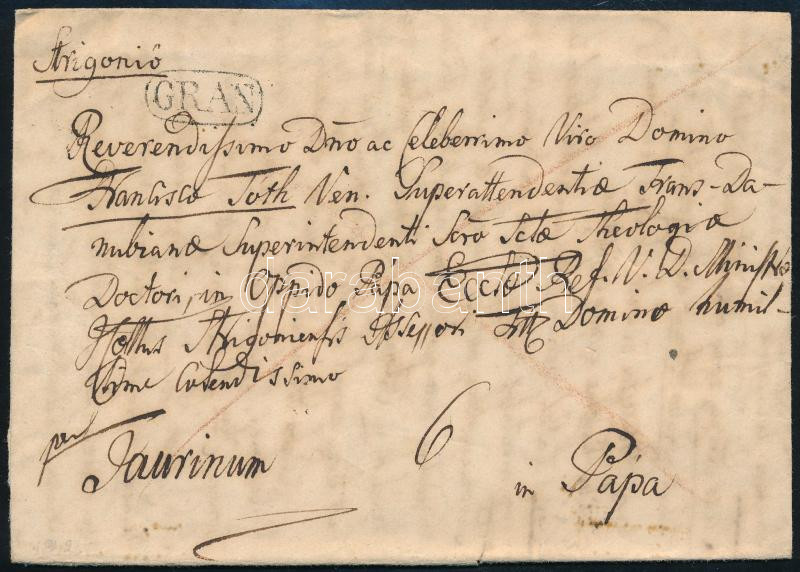 Strigonio
GRAN
Reverendissimo Dno ac Celeberrimo Viro Domino
Francisco Toth Ven. Superattendentiæ Trans-Da-
nubianæ Superintendenti Scro Sctæ Theologiæ
Doctori, in Oppido Papa Ecclæ Ref. V. D. Ministro
Strigoniensis Assessori Domino humil-
lime Colendissimo
per
Jaurinum
6
in Pápa
darabanth